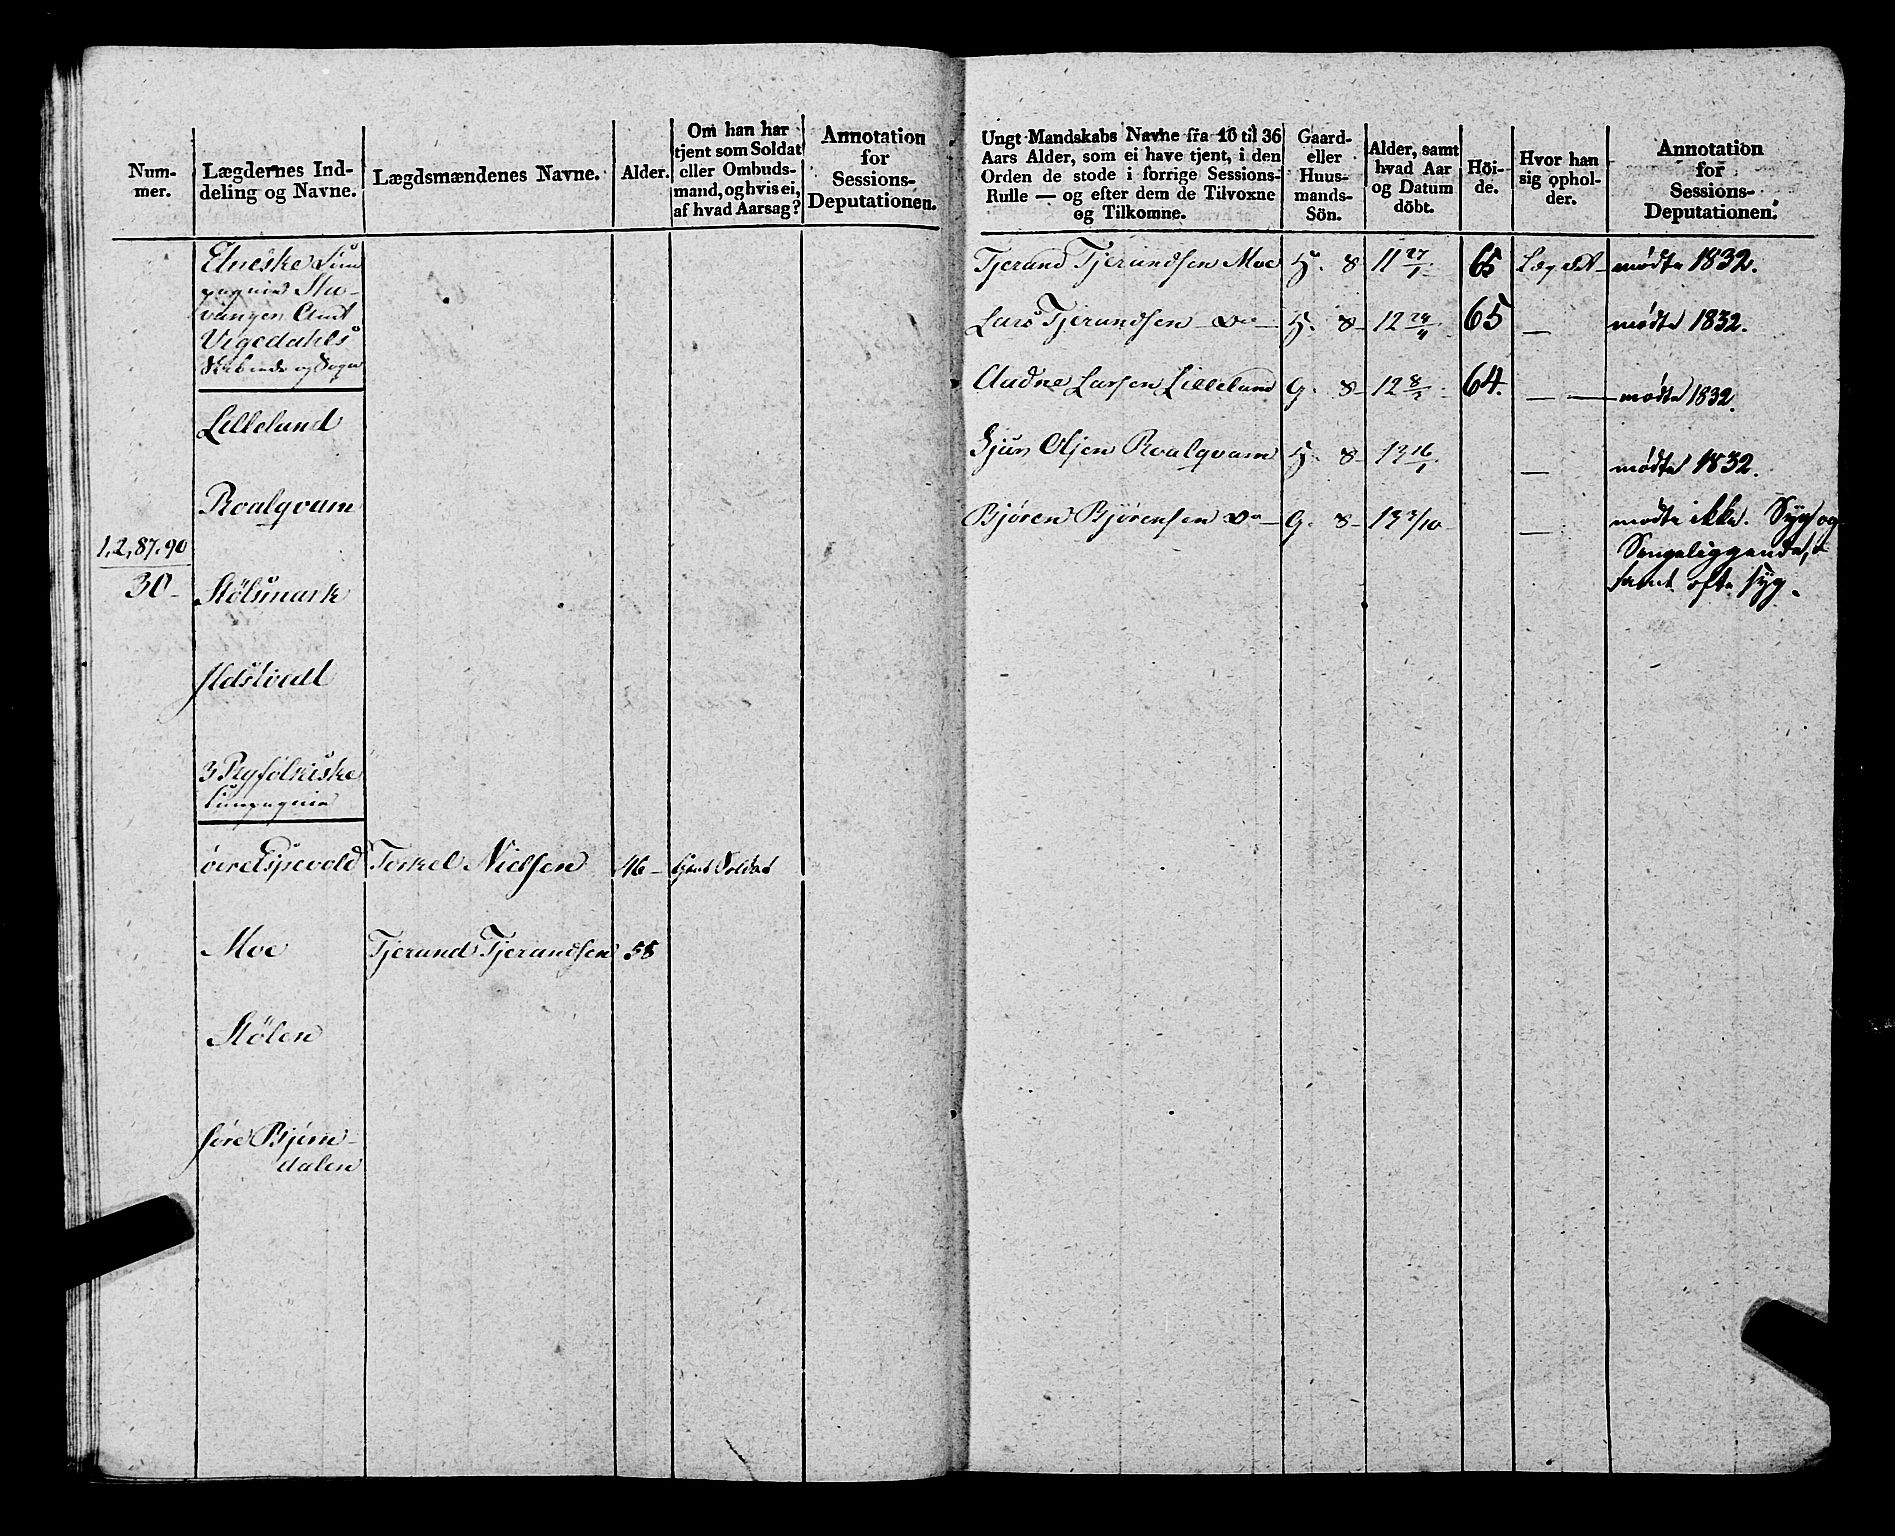 Num-
mer.
Lægdernes Ind-
deling og Navne.
Lægdsmændenes Navne.
Alder.
Om han har
tjent som Soldat
eller Ombuds-
mand, og hvis ei,
af hvad Aarsag?
Annotation
for
Sessions-
Deputationen.
Etneske Com
pagnie Sta-
vanger Amt
Vigedahls
Skibrede og Sogn
Lillelund
Roalqvam
1,2,87.90
30-
Stølsmark
Ildstvedt
3 Ryfølkeske
Compagnie
øvre Espevold Torkel Nielsen 46- Soldat
Moe Tjerand Tjerandsen 58
Stølen
søre Bjørn-
dalen
Ungt Mandskabs Navne fra 16 til 36
Aars Alder, som ei have tjent, i den
Orden de stode i forrige Sessions-
Rulle — og efter dem de Tilvoxne
og Tilkomne.
Gaard-
eller
Huus-
mands-
Sön.
Alder, samt
hvad Aar
og Datum
döbt.
Höi-
de.
Hvor han
sig ophol-
der.
Annotation
for
Sessions-
Deputationen.
Tjerand Tjerandsen Moe H. 8 11 27/1 65 Lægdet - mødte 1832.
Lars Tjerandsen - Do - H. 8- 12 24/4 65 — mødte 1832.
Audne Larsen Lillelund G. 8- 12 8/2 64. — — mødte 1832.
Sjur Olsen Roalqvam H. 8- 13 16/1 — mødte 1832.
Bjøren Bjørensen Do - G. 8- 13 3/10 — mødte ikke. Syg og
Sengeliggende,
samt ofte syg.